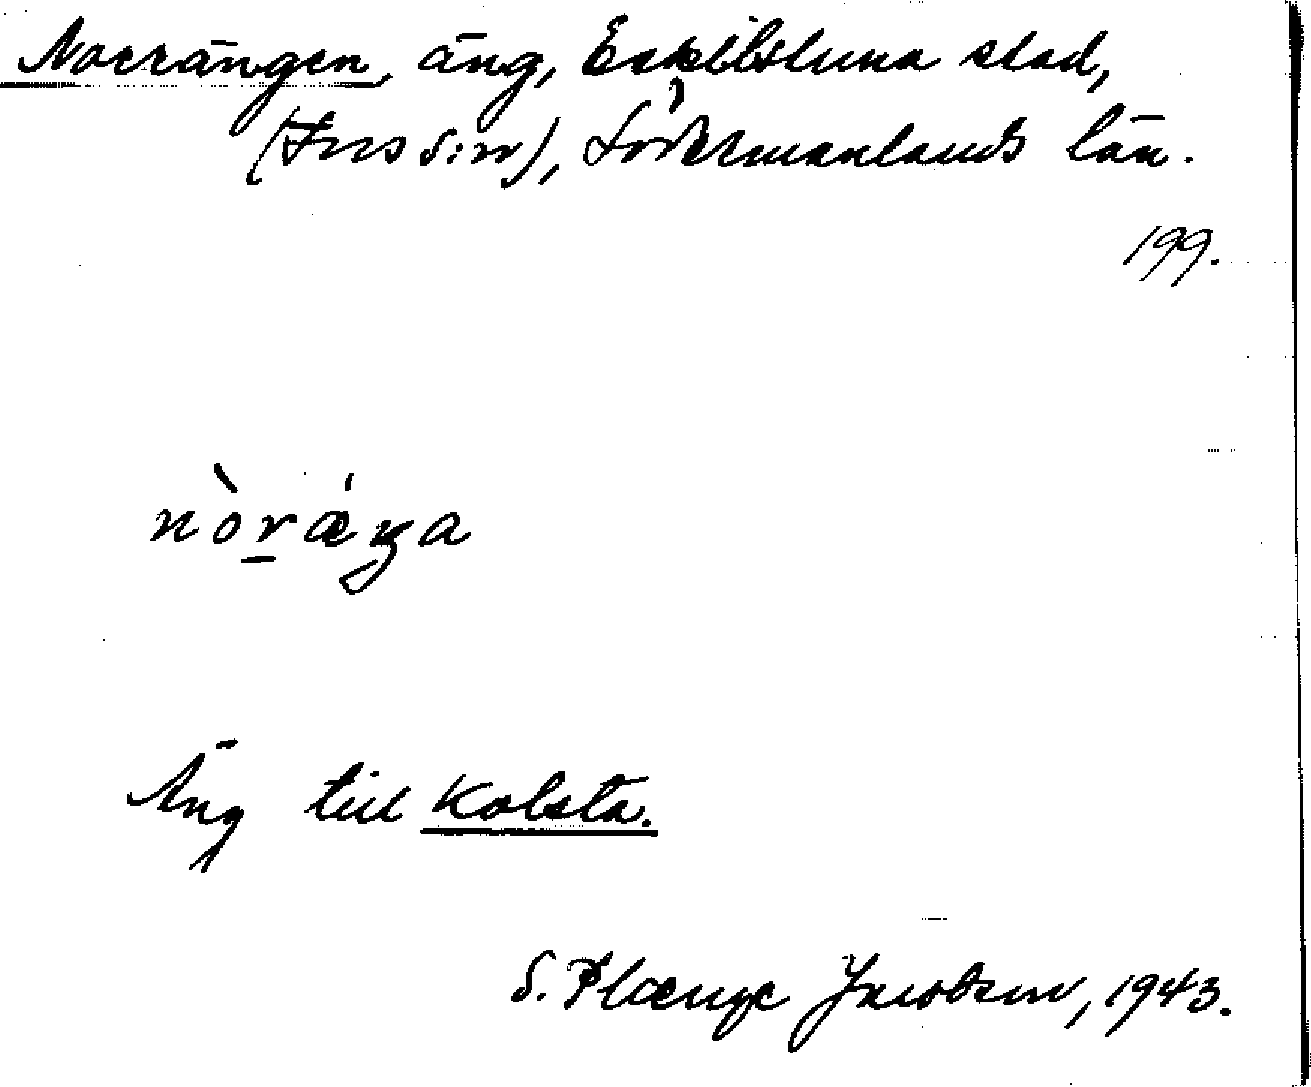 Norrängen, äng, Eskilstuna stad,
(Fors s:n), Södermanlands län.
199.
nòrǽŋa
Äng till Kolsta.
S. Plænge Jacobsen, 1943.